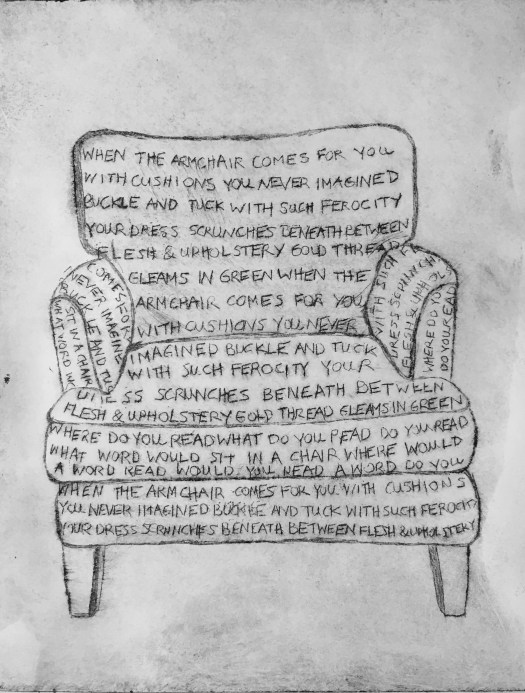 WHEN THE ARMCHAIR COMES FOR YOU
WITH CUSHIONS YOU NEVER IMAGINED
BUCKLE AND TUCK WITH SUCH FEROCITY
YOUR DRESS SCRUNCHES BENEATH BETWEEN
FLESH & UPHOLSTERY GOLD THREAD
GLEAMS IN GREEN WHEN THE
ARMCHAIR COMES FOR YOU
WITH CUSHIONS YOU NEVER
IMAGINED BUCKLE AND TUCK
WITH SUCH FEROCITY YOUR
DRESS SCRUNCHES BENEATH BETWEEN
FLESH & UPHOLSTERY GOLD THREAD GLEAMS IN GREEN
COMES FOR
NEVER IMAGINE
BUCKLE AND TUC
SIT IN A CHAIR
WHAT WORD
WITH SUCH
DRESS SCRUNCH
FLESH &
WHERE DO YO
DO YOU READ
WHERE DO YOU READ WHAT DO YOU READ DO YOU READ
WHAT WORD WOULD SIT IN A CHAIR WHERE WOULD
A WORD READ WOULD YOU NEED A WORD DO YOU
WHEN THE ARMCHAIR COMES FOR YOU WITH CUSHIONS
YOU NEVER IMAGINED BUCKLE AND TUCK WITH SUCH FEROCITY
YOUR DRESS SCRUNCHES BENEATH BETWEEN FLESH & UPHOLSTERY